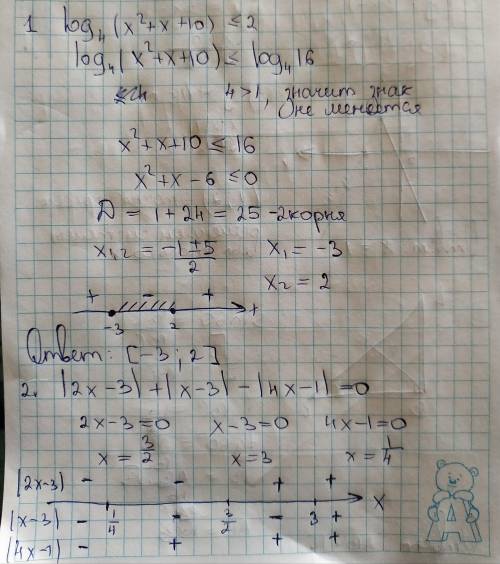 1 log₄(x²+x+10) ≤ 2
log₄(x²+x+10) ≤ log₄16
4>1, значит знак
не меняется
x²+x+10 ≤ 16
x²+x-6 ≤ 0
D = 1+24 = 25 -2корня
x₁,₂ = (-1±5)/2 x₁ = -3
x₂ = 2
+ - +
-3 2 x
Ответ: [-3; 2]
2. |2x-3|+|x-3|-|4x-1|=0
2x-3=0 x-3=0 4x-1=0
x = 3/2 x=3 x=1/4
|2x-3| - - + +
x
|x-3| - 1/4 - 3/2 - 3 +
|4x-1| - + + +
А